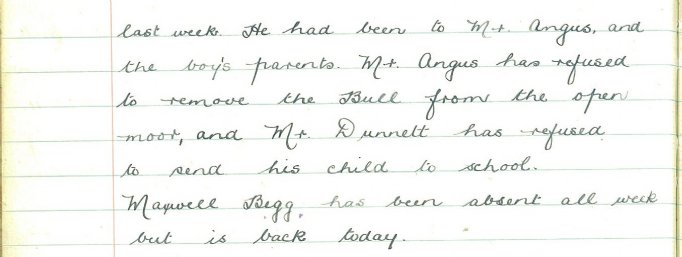 last week. He had been to Mr. Angus, and
the boy's parents. Mr. Angus has refused
to remove the Bull from the open
moor, and Mr. Dunnett has refused
to send his child to school.
Maxwell Begg. has been absent all week
but is back today.